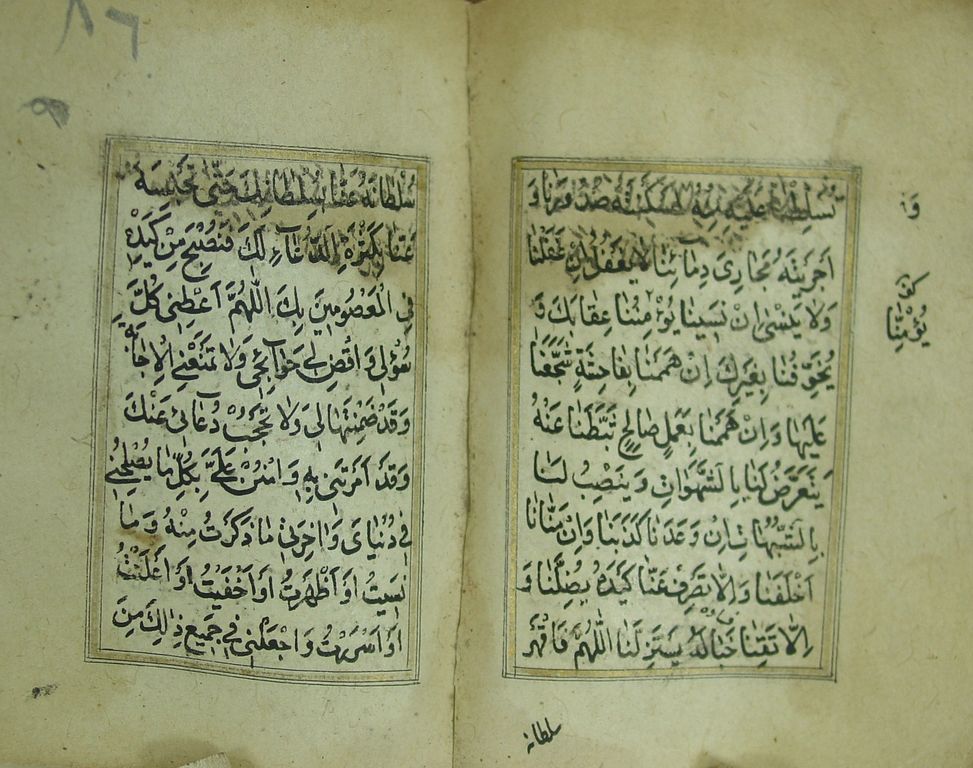 تُسَلِّطْنَا عَلَيْهِ مِنْهُ اَسْكَنْتَهُ صُدُورَنَا وَ
اَجْرَيْتَهُ مَجَارِيَ دِمَآئِنَا لَا يَغْفُلُ اِنْ غَفَلْنَا
وَلَا يَنْسٰى اِنْ نَسِينَا يُؤْمِنُنَا عِقَابَكَ وَ
يُخَوِّفُنَا بِغَيْرِكَ اِنْ هَمَمْنَا بِفَاحِشَةٍ شَجَّعَنَا
عَلَيْهَا وَاِنْ هَمَمْنَا بِعَمَلٍ صَالِحٍ ثَبَّطَنَا عَنْهُ
يَتَعَرَّضُ لَنَا بِالشَّهَوَاتِ وَيَنْصِبُ لَنَا
بِالشُّبُهَاتِ اِنْ وَعَدَنَا كَذَبَنَا وَاِنْ مَنَّانَا
اَخْلَفَنَا وَاِلَّا تَصْرِفْ عَنَّا كَيْدَهُ يُضِلَّنَا وَ
اِلَّا تَقِنَا خَبَالَهُ يَسْتَزِلَّنَا اَللّٰهُمَّ فَاقْهَرْ
سلطانه
سُلْطَانَهُ عَنَّا بِسُلْطَانِكَ حَتّٰى تَحْبِسَهُ
عَنَّا بِكَثْرَةِ الدُّعَآءِ لَكَ فَنُصْبِحَ مِنْ كَيْدِهِ
فِي الْمَعْصُومِينَ بِكَ اَللّٰهُمَّ اَعْطِنِي كُلَّ
سُؤْلِي وَاقْضِ لِي حَوَآئِجِي وَلَا تَمْنَعْنِي الْاِجَابَةَ
وَقَدْ ضَمِنْتَهَا لِي وَلَا تَحْجُبْ دُعَآئِي عَنْكَ
وَقَدْ اَمَرْتَنِي بِهِ وَامْنُنْ عَلَيَّ بِكُلِّ مَا يُصْلِحُنِي
فِي دُنْيَايَ وَاٰخِرَتِي مَا ذَكَرْتُ مِنْهُ وَمَا
نَسِيتُ اَوْ اَظْهَرْتُ اَوْ اَخْفَيْتُ اَوْ اَعْلَنْتُ
اَوْ اَسْرَرْتُ وَاجْعَلْنِي فِي جَمِيعِ ذٰلِكَ مِنَ